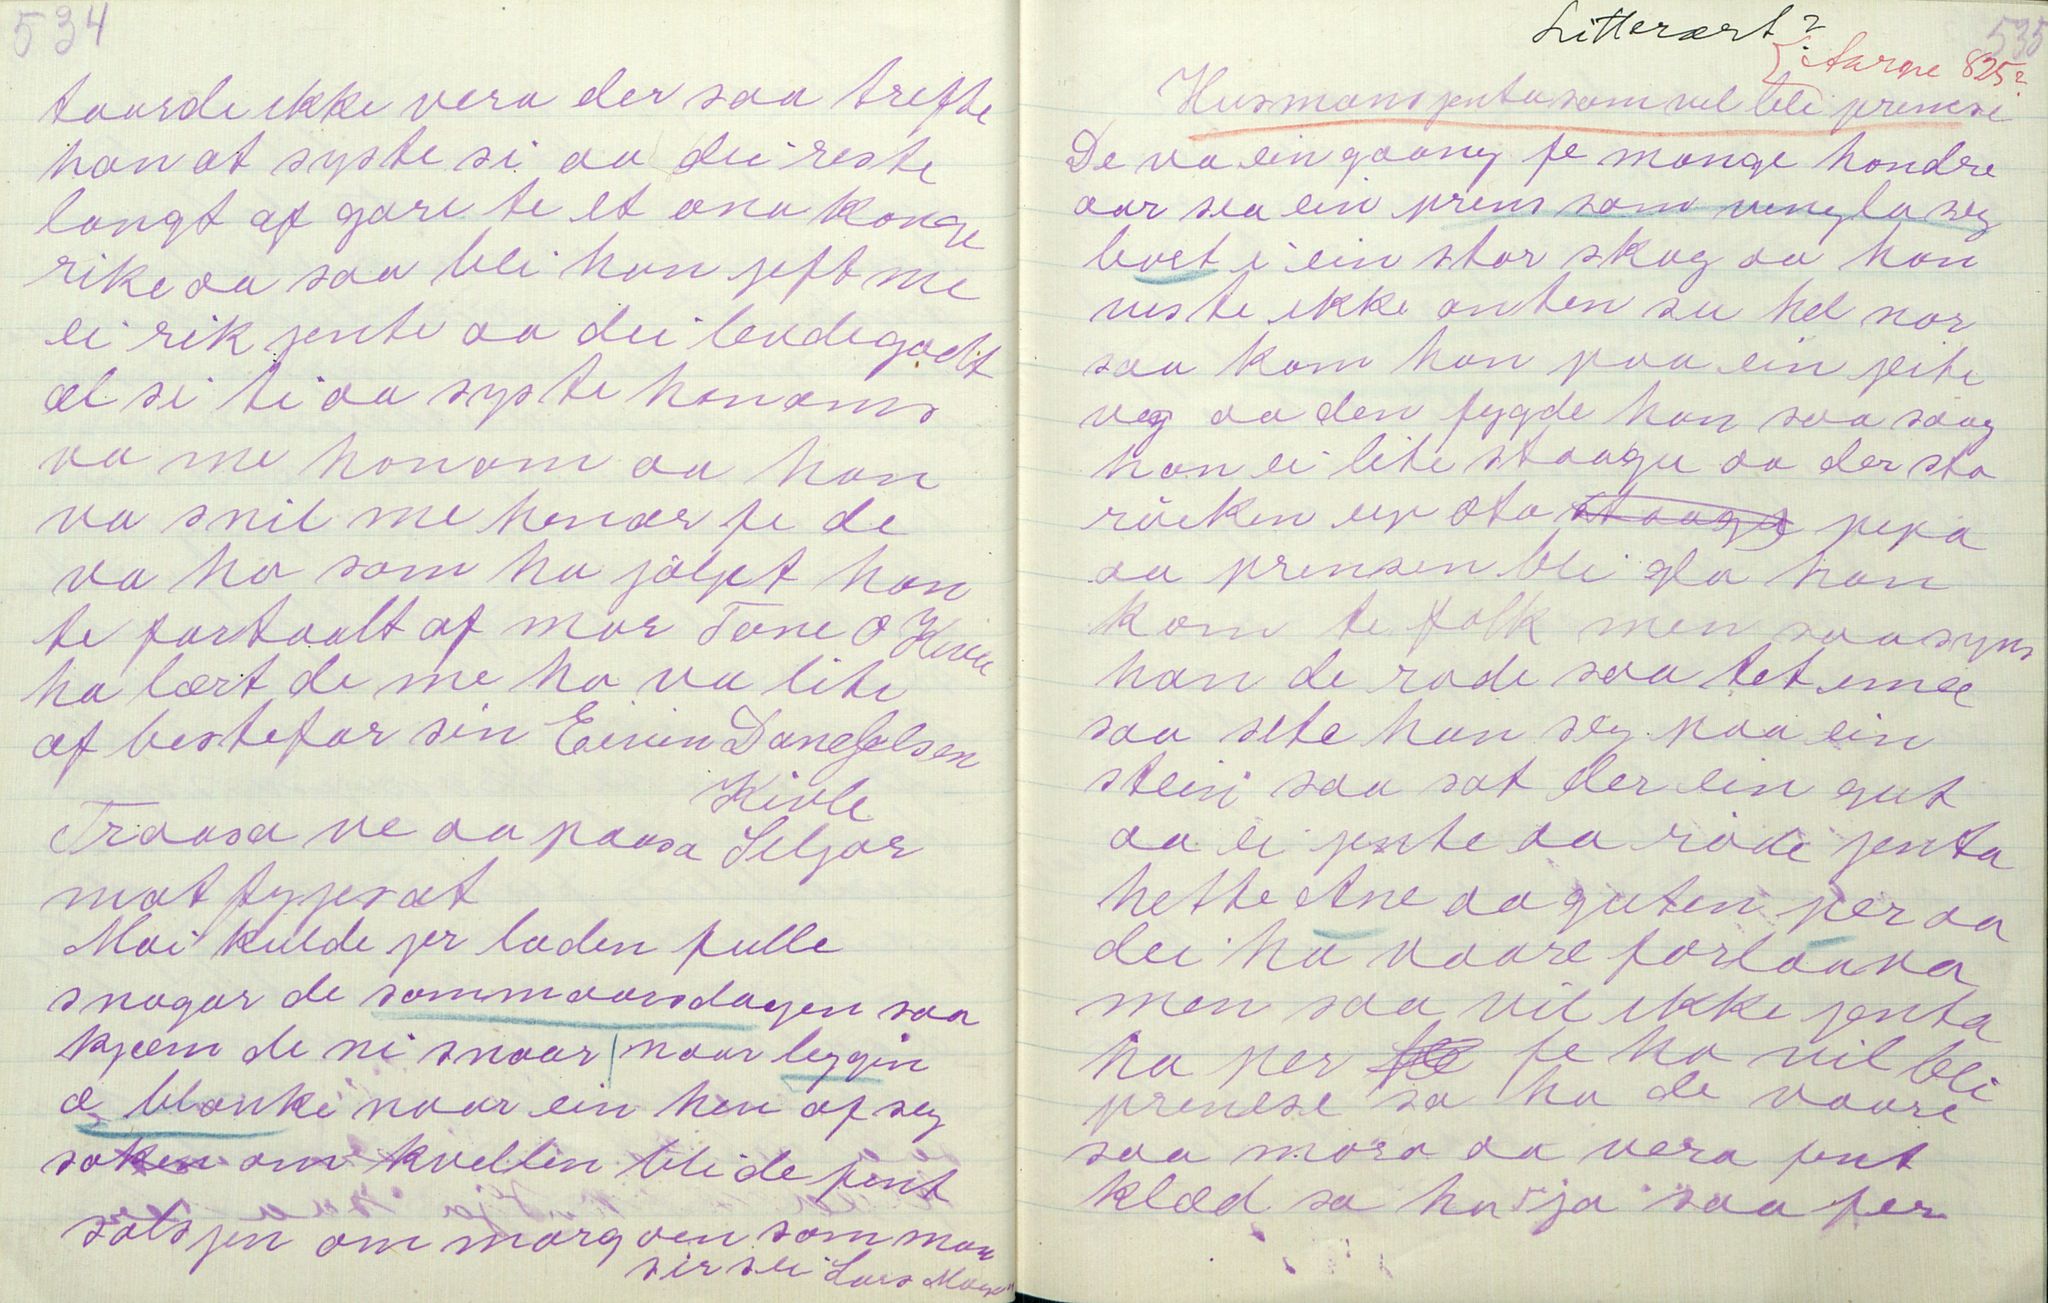 534
taarde ikke vera der saa trefte
han at syste si aa dei reste
langt af gare te et ana konge
rike aa saa blei han jeft me
ei rik jente aa dei levde godt
al si ti aa syste honoms
va me honom aa han
va snil me henær fe de
va ho som ha jolpt han
te fortaalt af mor Tone O Kivle
ha lært de me ho va lite
af bestefar sin Eivin Danelsen
Kivle
Traasa ve aa paasa Seljor
mat fygjer at
Mai kulde jer laden fulle
snogar de sommaarsdagen saa
kjæm de ni snaar naar leggin
æ blanke naar ein hen af seg
soken om kvellen blei de pent
solsjen om morgoen som man
sir sei Lars
Litterært?
535
Aarne 825?
Husmansjenta som vil bli prinsese
De va ein gaang fe mange hondre
aar sia ein prins som vengla seg
bort i ein stor skog aa han
viste ikke anten su hel nor
saa kom han paa ein jeite
veg aa den fygde han saa saag
han ei lite staague aa der sto
röiken up ota staagu pepa
aa prensen blei gla han
kom te folk men saa syns
han de rode saa tet inne
saa sete han seg paa ein
stein saa sat der ein gut
aa ei jente aa rode jenta
hette Ane aa guten per aa
dei ha vaare forlaava
men saa vil ikke jenta
ha per fe ho vil bli
prensese sa ho de vaare
saa mora aa vera pent
klæd sa ho ja saa per